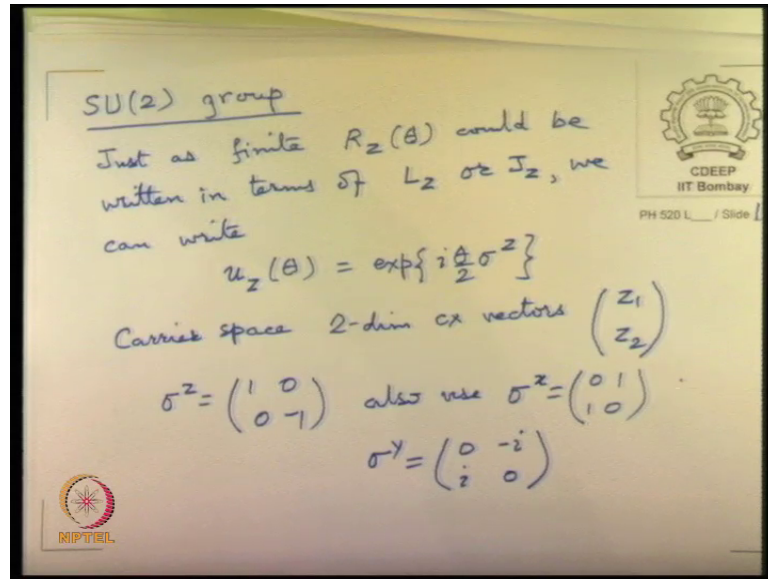 SU(2) group
Just as finite R_z(θ) could be
written in terms of L_z or J_z, we
can write
u_z(θ) = exp{ i θ/2 σ^z }
Carrier space 2-dim cx vectors (z_1 z_2)
σ^z = (1 0 0 -1) also use σ^x = (0 1 1 0)
σ^y = (0 -i i 0)
CDEEP
IIT Bombay
PH 520 L___ / Slide
NPTEL